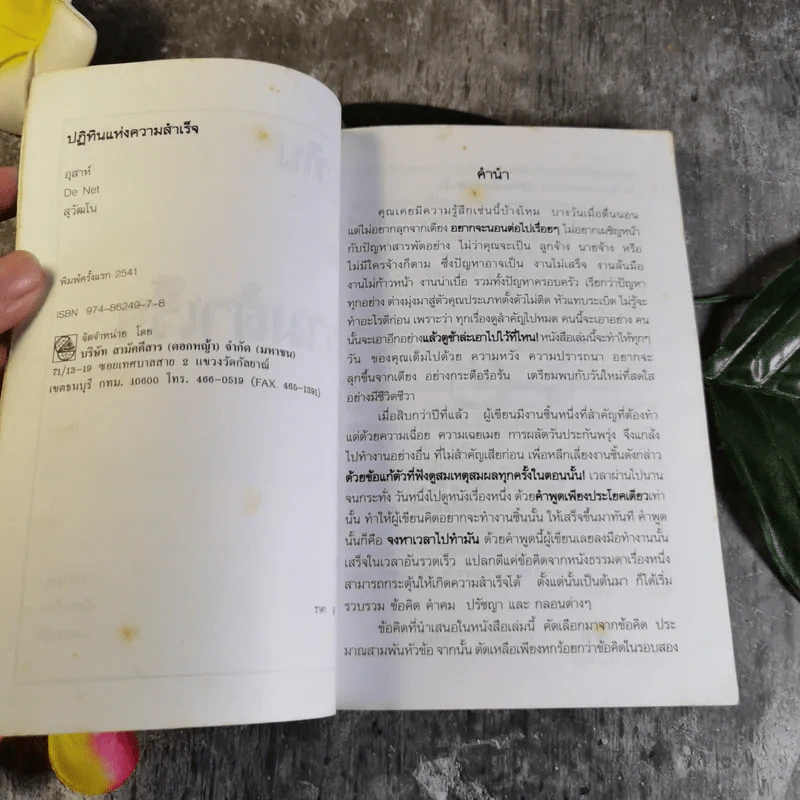 ปฏิทินแห่งความสำเร็จ
อุสาห์
De Net
สุวัฒโน
พิมพ์ครั้งแรก 2541
ISBN 974-86249-7-8
จัดจำหน่าย โดย
บริษัท สามัคคีสาร (ดอกหญ้า) จำกัด (มหาชน)
71/13-19 ซอยเทศบาลสาย 2 แขวงวัดกัลยาณ์
เขตธนบุรี กทม. 10600 โทร. 466-0519 (FAX. 465-1391)
ราคา
คำนำ
คุณเคยมีความรู้สึกเช่นนี้บ้างไหม บางวันเมื่อตื่นนอน
แต่ไม่อยากลุกจากเตียง อยากจะนอนต่อไปเรื่อยๆ ไม่อยากเผชิญหน้า
กับปัญหาสารพัดอย่าง ไม่ว่าคุณจะเป็น ลูกจ้าง นายจ้าง หรือ
ไม่มีใครจ้างก็ตาม ซึ่งปัญหาอาจเป็น งานไม่เสร็จ งานล้นมือ
งานไม่ก้าวหน้า งานน่าเบื่อ รวมทั้งปัญหาครอบครัว เรียกว่าปัญหา
ทุกอย่าง ต่างมุ่งมาสู่ตัวคุณประเภทตั้งตัวไม่ติด หัวแทบระเบิด ไม่รู้จะ
ทำอะไรดีก่อน เพราะว่า ทุกเรื่องดูสำคัญไปหมด คนนี้จะเอาอย่าง คน
นั้นจะเอาอีกอย่างแล้วดูซิล่ะเอาไปไว้ที่ไหน! หนังสือเล่มนี้จะทำให้ทุกๆ
วัน ของคุณเต็มไปด้วย ความหวัง ความปรารถนา อยากจะ
ลุกขึ้นจากเตียง อย่างกระตือรือร้น เตรียมพบกับวันใหม่ที่สดใส
อย่างมีชีวิตชีวา
เมื่อสิบกว่าปีที่แล้ว ผู้เขียนมีงานชิ้นหนึ่งที่สำคัญที่ต้องทำ
แต่ด้วยความเฉื่อย ความเฉยเมย การผลัดวันประกันพรุ่ง จึงแกล้ง
ไปทำงานอย่างอื่น ที่ไม่สำคัญเสียก่อน เพื่อหลีกเลี่ยงงานชิ้นดังกล่าว
ด้วยข้อแก้ตัวที่ฟังดูสมเหตุสมผลทุกครั้งในตอนนั้น! เวลาผ่านไปนาน
จนกระทั่ง วันหนึ่งไปดูหนังเรื่องหนึ่ง ด้วยคำพูดเพียงประโยคเดียวเท่า
นั้น ทำให้ผู้เขียนคิดอยากจะทำงานชิ้นนั้น ให้เสร็จขึ้นมาทันที คำพูด
นั้นก็คือ จงหาเวลาไปทำมัน ด้วยคำพูดนี้ผู้เขียนเลยลงมือทำงานนั้น
เสร็จในเวลาอันรวดเร็ว แปลกดีแค่ข้อคิดจากหนังธรรมดาเรื่องหนึ่ง
สามารถกระตุ้นให้เกิดความสำเร็จได้ ตั้งแต่นั้นเป็นต้นมา ก็ได้เริ่ม
รวบรวม ข้อคิด คำคม ปรัชญา และ กลอนต่างๆ
ข้อคิดที่นำเสนอในหนังสือเล่มนี้ คัดเลือกมาจากข้อคิด ประ
มาณสามพันหัวข้อ จากนั้น ตัดเหลือเพียงหกร้อยกว่าข้อคิดในรอบสอง